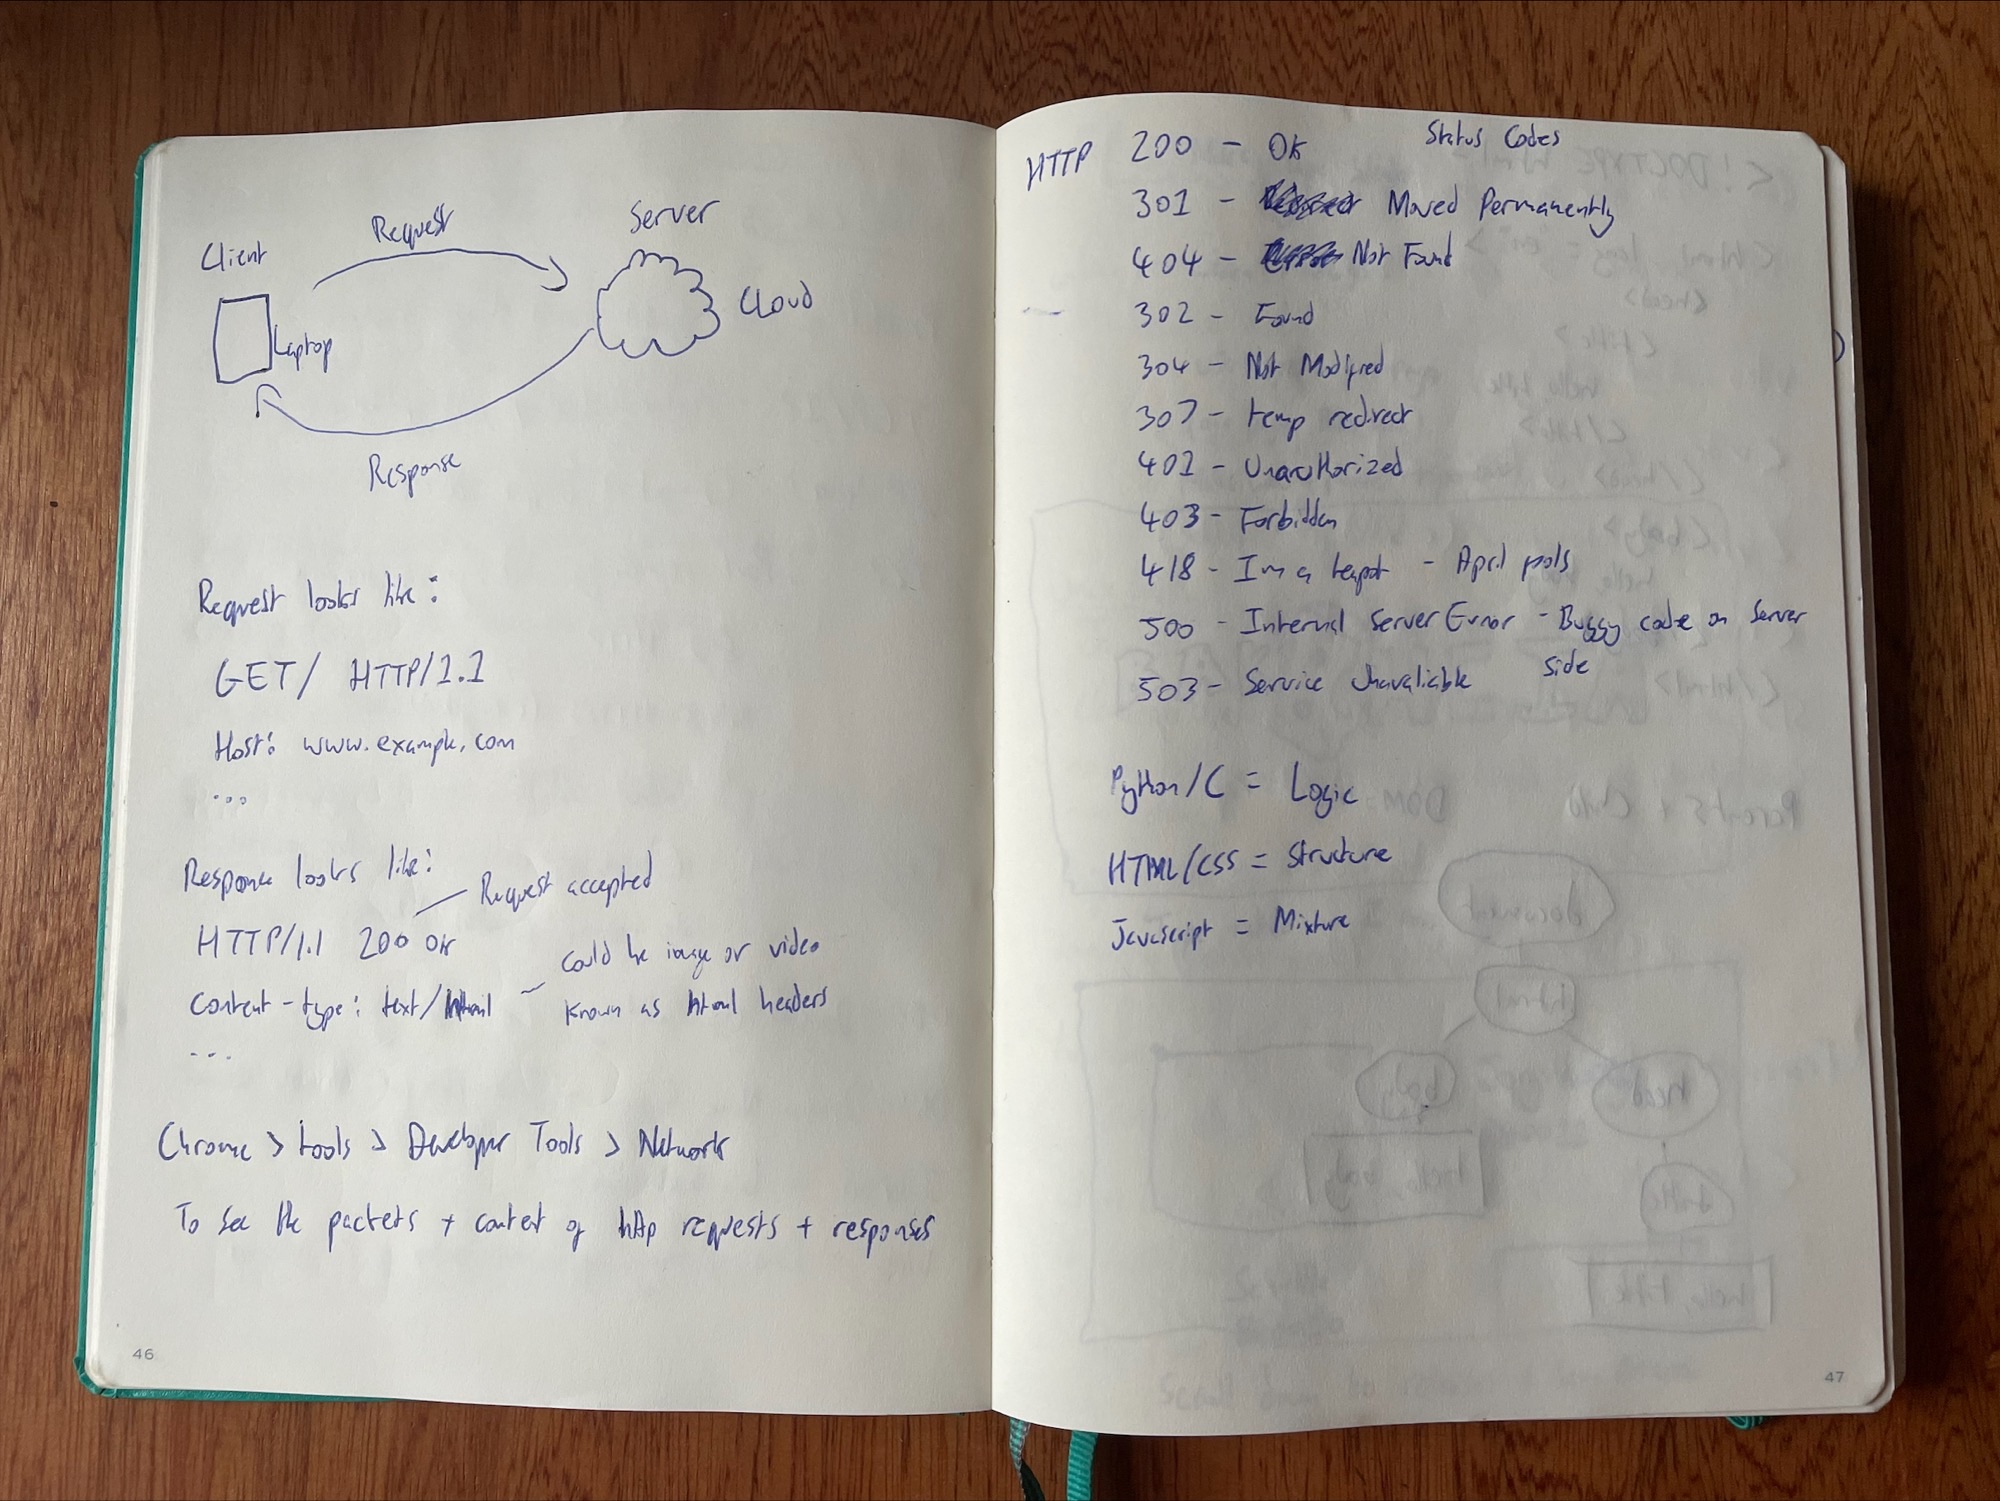 Request
Server
Client
Cloud
Laptop
Response
Request looks like:
GET/ HTTP/1.1
Host: www.example.com
...
Response looks like:
Request accepted
HTTP/1.1 200 OK
could be image or video
content-type: text/html
known as html headers
...
Chrome > tools > Developer Tools > Network
To see the packets + content of http requests + responses
46
Status Codes
HTTP 200 - OK
301 - Moved Permanently
404 - Not Found
302 - Found
304 - Not Modified
307 - temp redirect
401 - Unauthorized
403 - Forbidden
418 - Im a teapot - April fools
500 - Internal Server Error - Buggy code on Server
side
503 - Service Unavaliable
Python/C = Logic
HTML/CSS = Structure
Javascript = Mixture
47